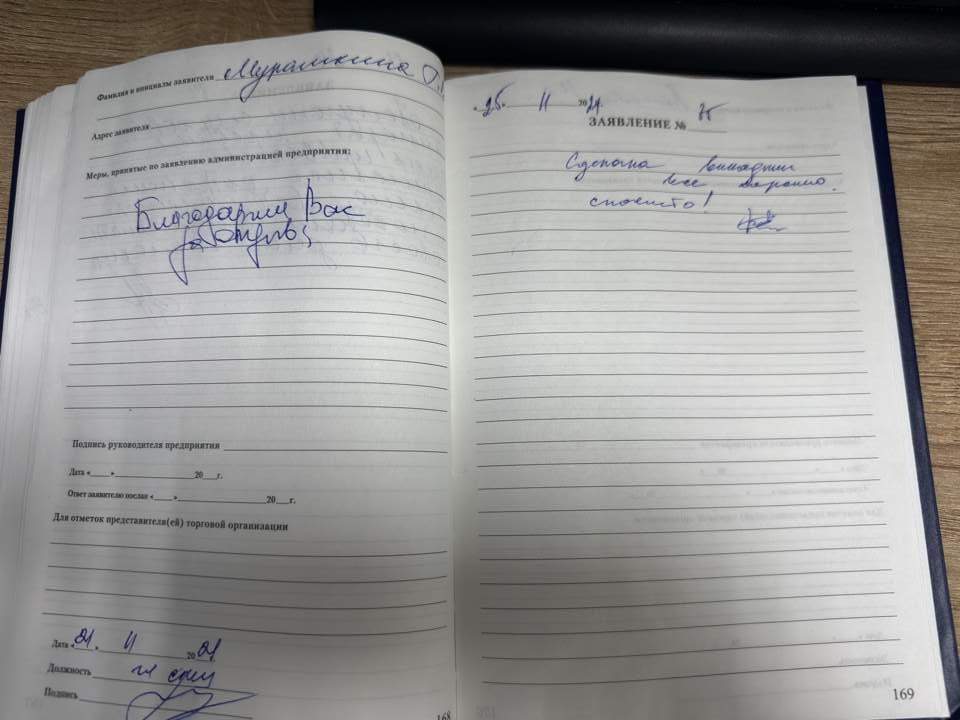 Фамилия и инициалы заявителя Мурашкина Г.
Адрес заявителя
Меры, принятые по заявлению администрацией предприятия:
Благодарим Вас
за отзыв
Подпись руководителя предприятия
Дата «____» ____ 20__г.
Ответ заявителю послан «____» ____ 20__г.
Для отметок представителя(ей) торговой организации
Дата 11 20
Должность
Подпись
168
25. 11 2021
ЗАЯВЛЕНИЕ №
Сделана
все, хорошо.
спасибо!
169